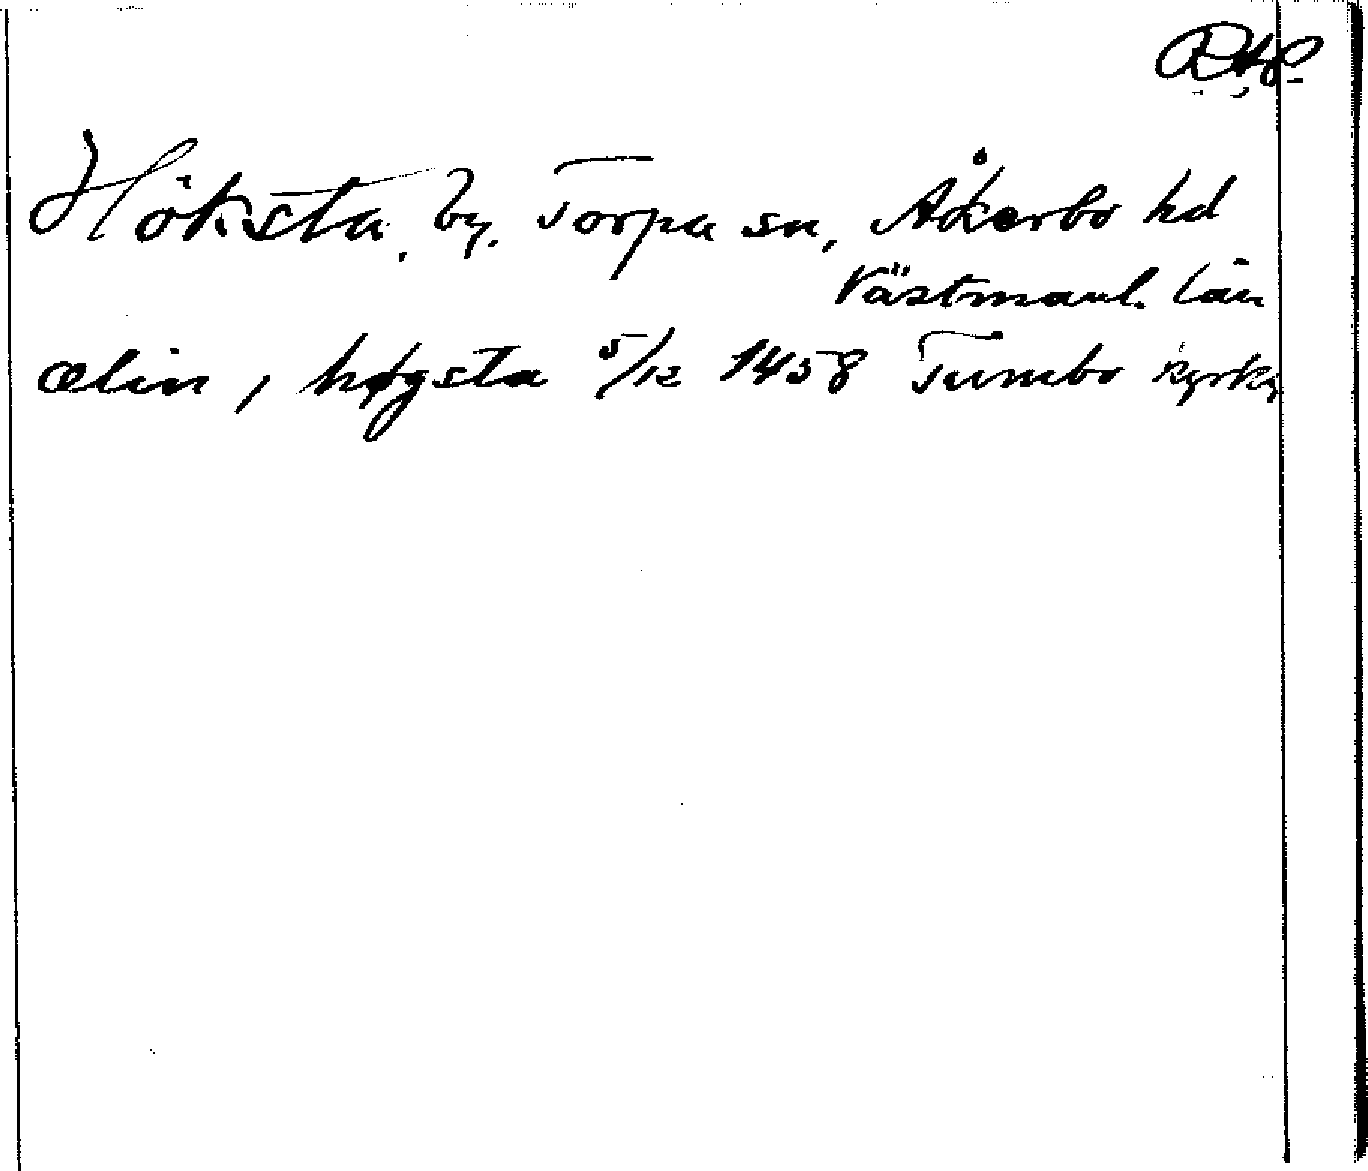 Höksta, by. Torpa sn, Åkerbo hd
Västmanl. län
ælin, i høgsta 5/12 1458 Tumbo kyrka